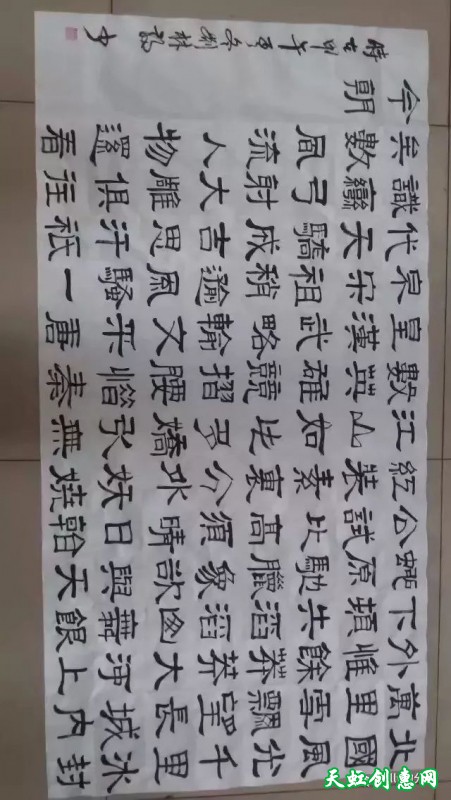 北國風光千里冰封
萬里雪飄望長城内
外惟餘莽莽大河上
下頓失滔滔山舞銀
蛇原馳臘象欲與天
公試比高須晴日看
紅裝素裹分外妖嬈
江山如此多嬌引無
數英雄競折腰惜秦
皇漢武略輸文采唐
宗宋祖稍遜風騷一
代天驕成吉思汗祇
識彎弓射大雕俱往
矣數風流人物還看
今朝
時在甲午
天虹创惠网